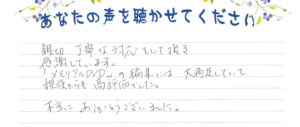 あなたの声を聴かせてください
親切 丁寧な対応をして頂き
感謝しています。
「メモリアルDVD」の編集には 大満足していて
親族からも高評価でした。
本当に ありがとうございました。